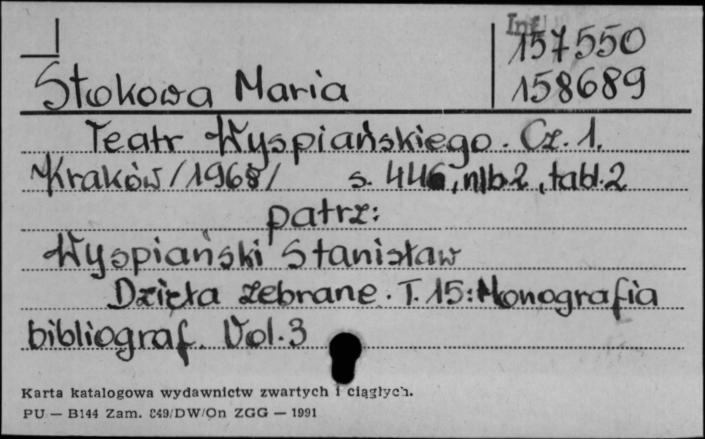 Inf
157550
Stokowa Maria 158689
Teatr Wyspiańskiego. Cz. 1.
Kraków /1968/ s. 446, nlb 2, tabl. 2
patrz:
Wyspiański Stanisław
Dzieła zebrane. T. 15: Monografia
bibliograf. Vol. 3
Karta katalogowa wydawnictw zwartych i ciągłych.
PU — B144 Zam. 849/DW/On ZGG — 1991